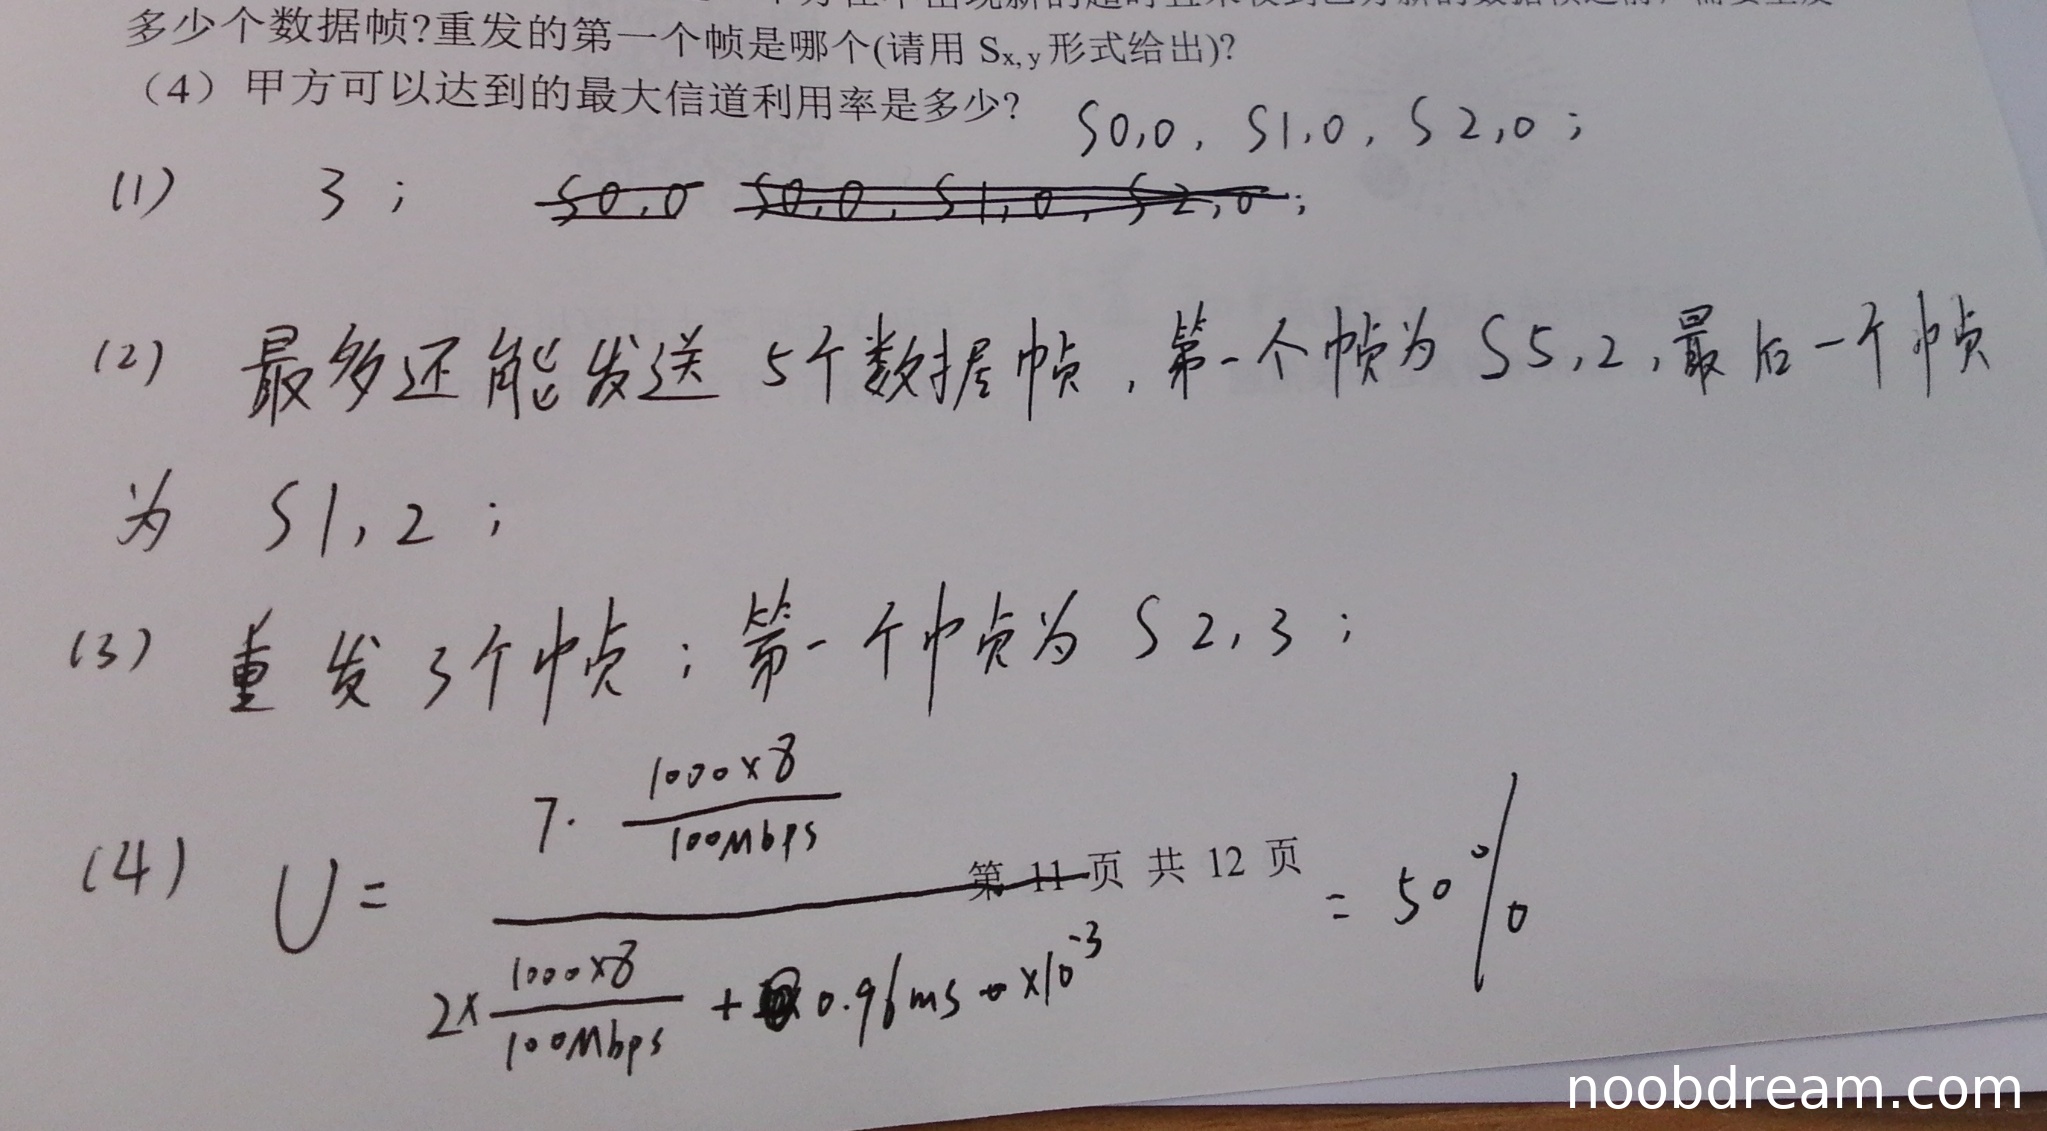 多少个数据帧?重发的第一个帧是哪个(请用 Sx,y 形式给出)?
（4）甲方可以达到的最大信道利用率是多少?
S0,0, S1,0, S2,0;
(1) 3; S0,0 S0,0, S1,0, S2,0;
(2) 最多还能发送 5个数据帧,第一个帧为 S5,2,最后一个帧
为 S1,2;
(3) 重发3个帧;第一个帧为 S2,3;
7· 1000×8
100Mbps
(4) U = = 50%
第 11 页 共 12 页
2× 1000×8 + 0.96ms ×10-3
100Mbps
noobdream.com